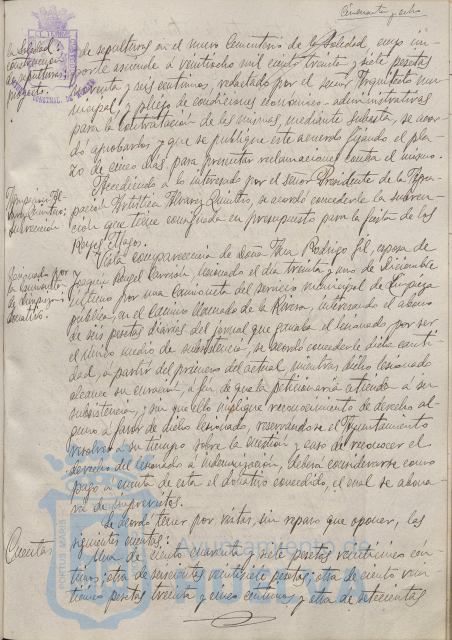 Cincuenta y ocho
la Soledad:
construcción
de sepulturas:
proyecto.
de sepulturas en el nuevo Cementerio de la Soledad, cuyo im-
porte asciende a veintiocho mil cuatro treinta y siete pesetas
treinta y seis centimos, redactado por el señor Arquitecto mu-
nicipal y pliego de condiciones económico-administrativas
para la contratación de las mismas, mediante subasta, se acor-
dó aprobarlos y que se publique este acuerdo fijando el pla-
zo de cinco dias para presentar reclamaciones contra el mismo.
Agrupación Ar-
Alvarez Quintero:
subvención
Accediendo a lo interesado por el señor Presidente de la Agru-
pación Artística Alvarez Quintero, se acordó concederle la subven-
ción que tiene consignada en presupuesto para la fiesta de los
Reyes Magos.
Lesionado por
la camioneta
de limpieza:
donativo.
Vista comparecencia de Doña Ana Rodrigo Gil, esposa de
Joaquin Rangel Carmona, lesionado el dia treinta y uno de diciembre
ultimo por una camioneta del servicio municipal de limpieza
publica, en el camino llamado de la Rivera, interesando el abono
de seis pesetas diarias del jornal que ganaba el lesionado, por ser
el unico medio de subsistencia, se acordó concederle dicha canti-
dad, a partir del primero del actual, mientras dicho lesionado
alcance su curación, a fin de que la peticionaria atienda a su
subsistencia, y sin que ello implique reconocimiento de derecho al-
guno a favor de dicho lesionado, reservandose el Ayuntamiento
resolver a su tiempo sobre la cuestión y caso de reconocer el
derecho del lesionado a indemnización, deberá considerarse como
pago a cuenta de esta el donativo concedido, el cual se abona-
rá de imprevistos.
Cuentas
Se acordó tener por vistas, sin reparo que oponer, las
siguientes cuentas:
Una de ciento cuarenta y siete pesetas veinticinco cén-
timos; otra de seiscientas veintisiete pesetas; otra de ciento vein-
ticinco pesetas treinta y cinco centimos y otra de setecientas
Ayuntamiento de